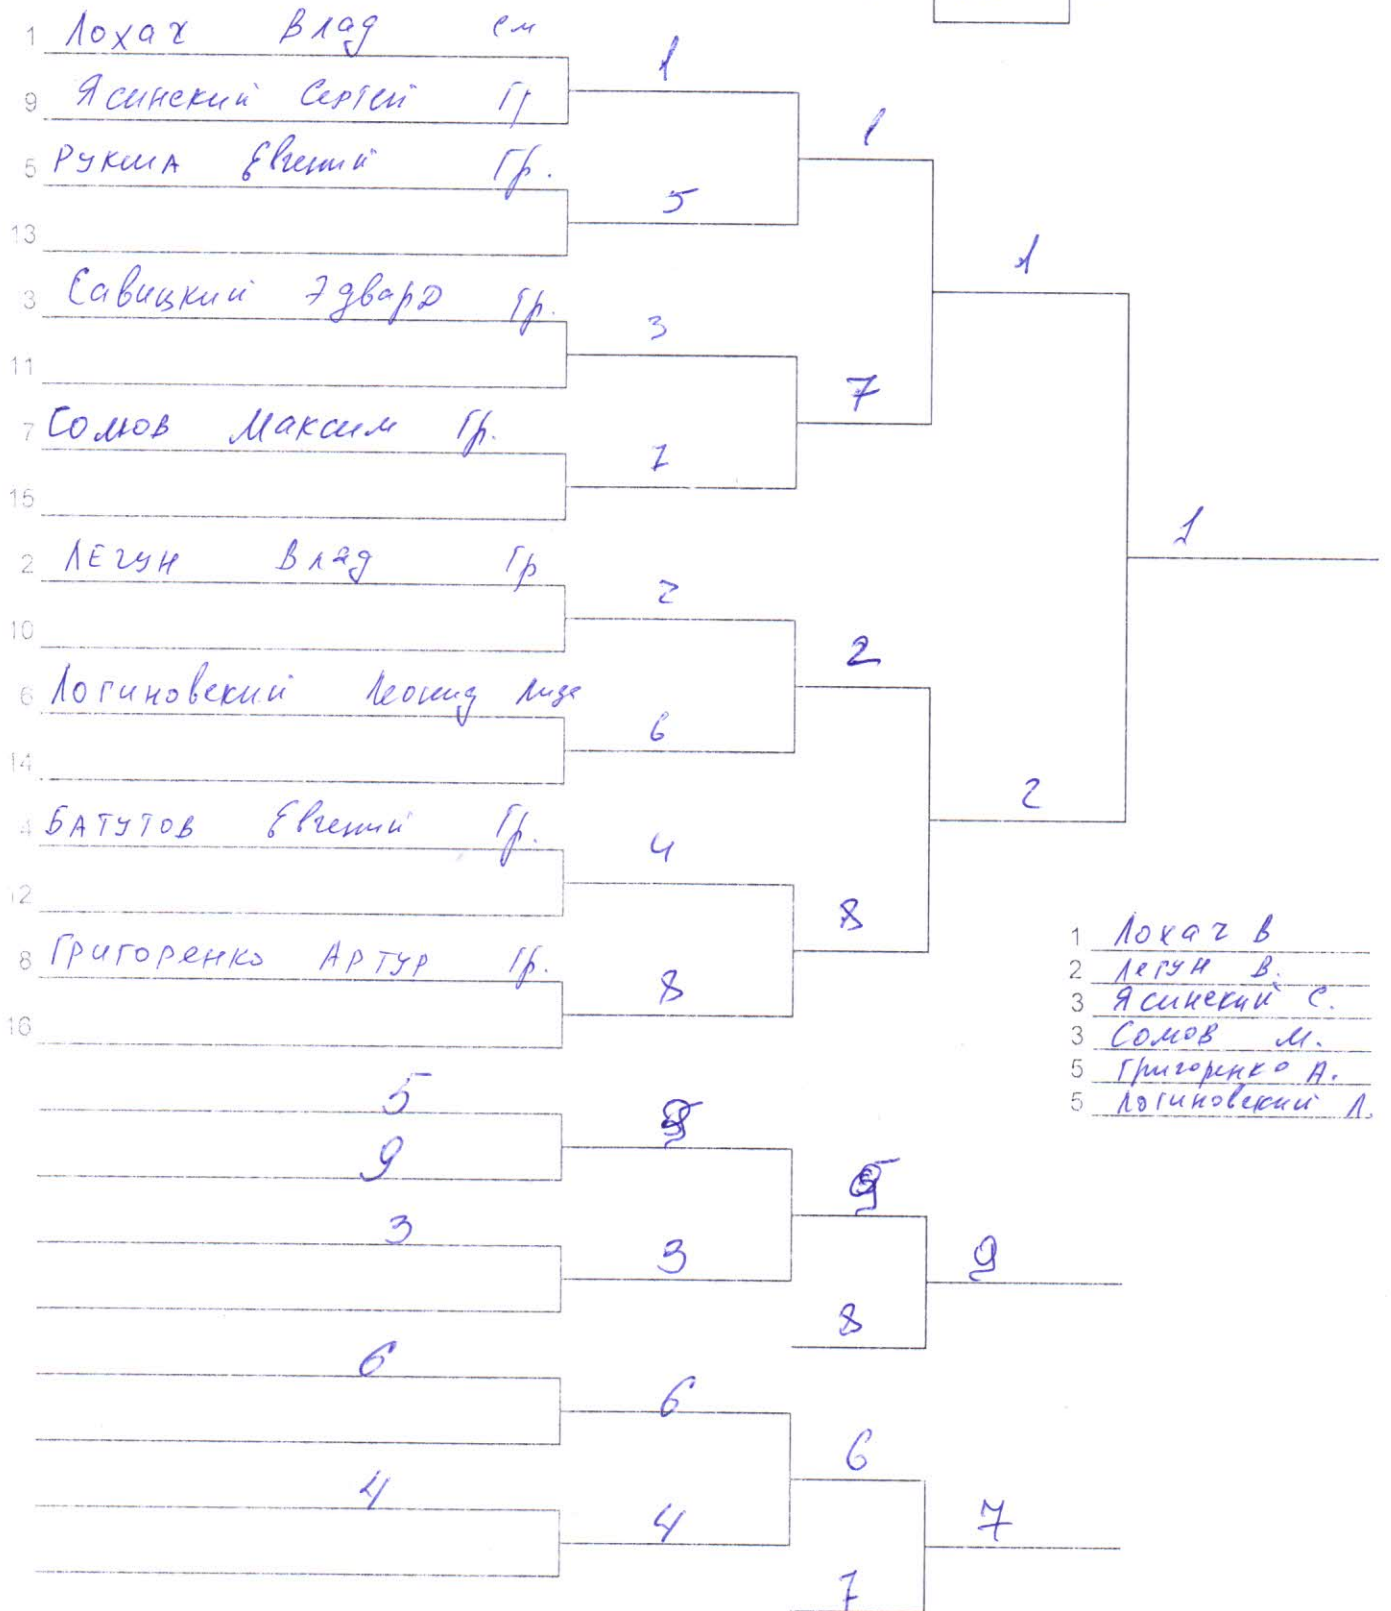 1 Лохач Влад См
1
9 Ясинский Сергей Гр
1
5 Рукша Евгений Гр.
5
13
1
3 Савицкий Эдвард Гр.
3
11
7
7 Сомов Максим Гр.
7
15
1
2 Легун Влад Гр
2
10
2
6 Логиновский Леонид Лида
6
14
2
4 Батутов Евгений Гр.
4
12
8
8 Григоренко Артур Гр.
8
16
1 Лохач В
2 Легун В.
3 Ясинский С.
3 Сомов М.
5 Григоренко А.
5 Логиновский Л.
5
9
3
3
9
8
6
6
6
4
4
7
7